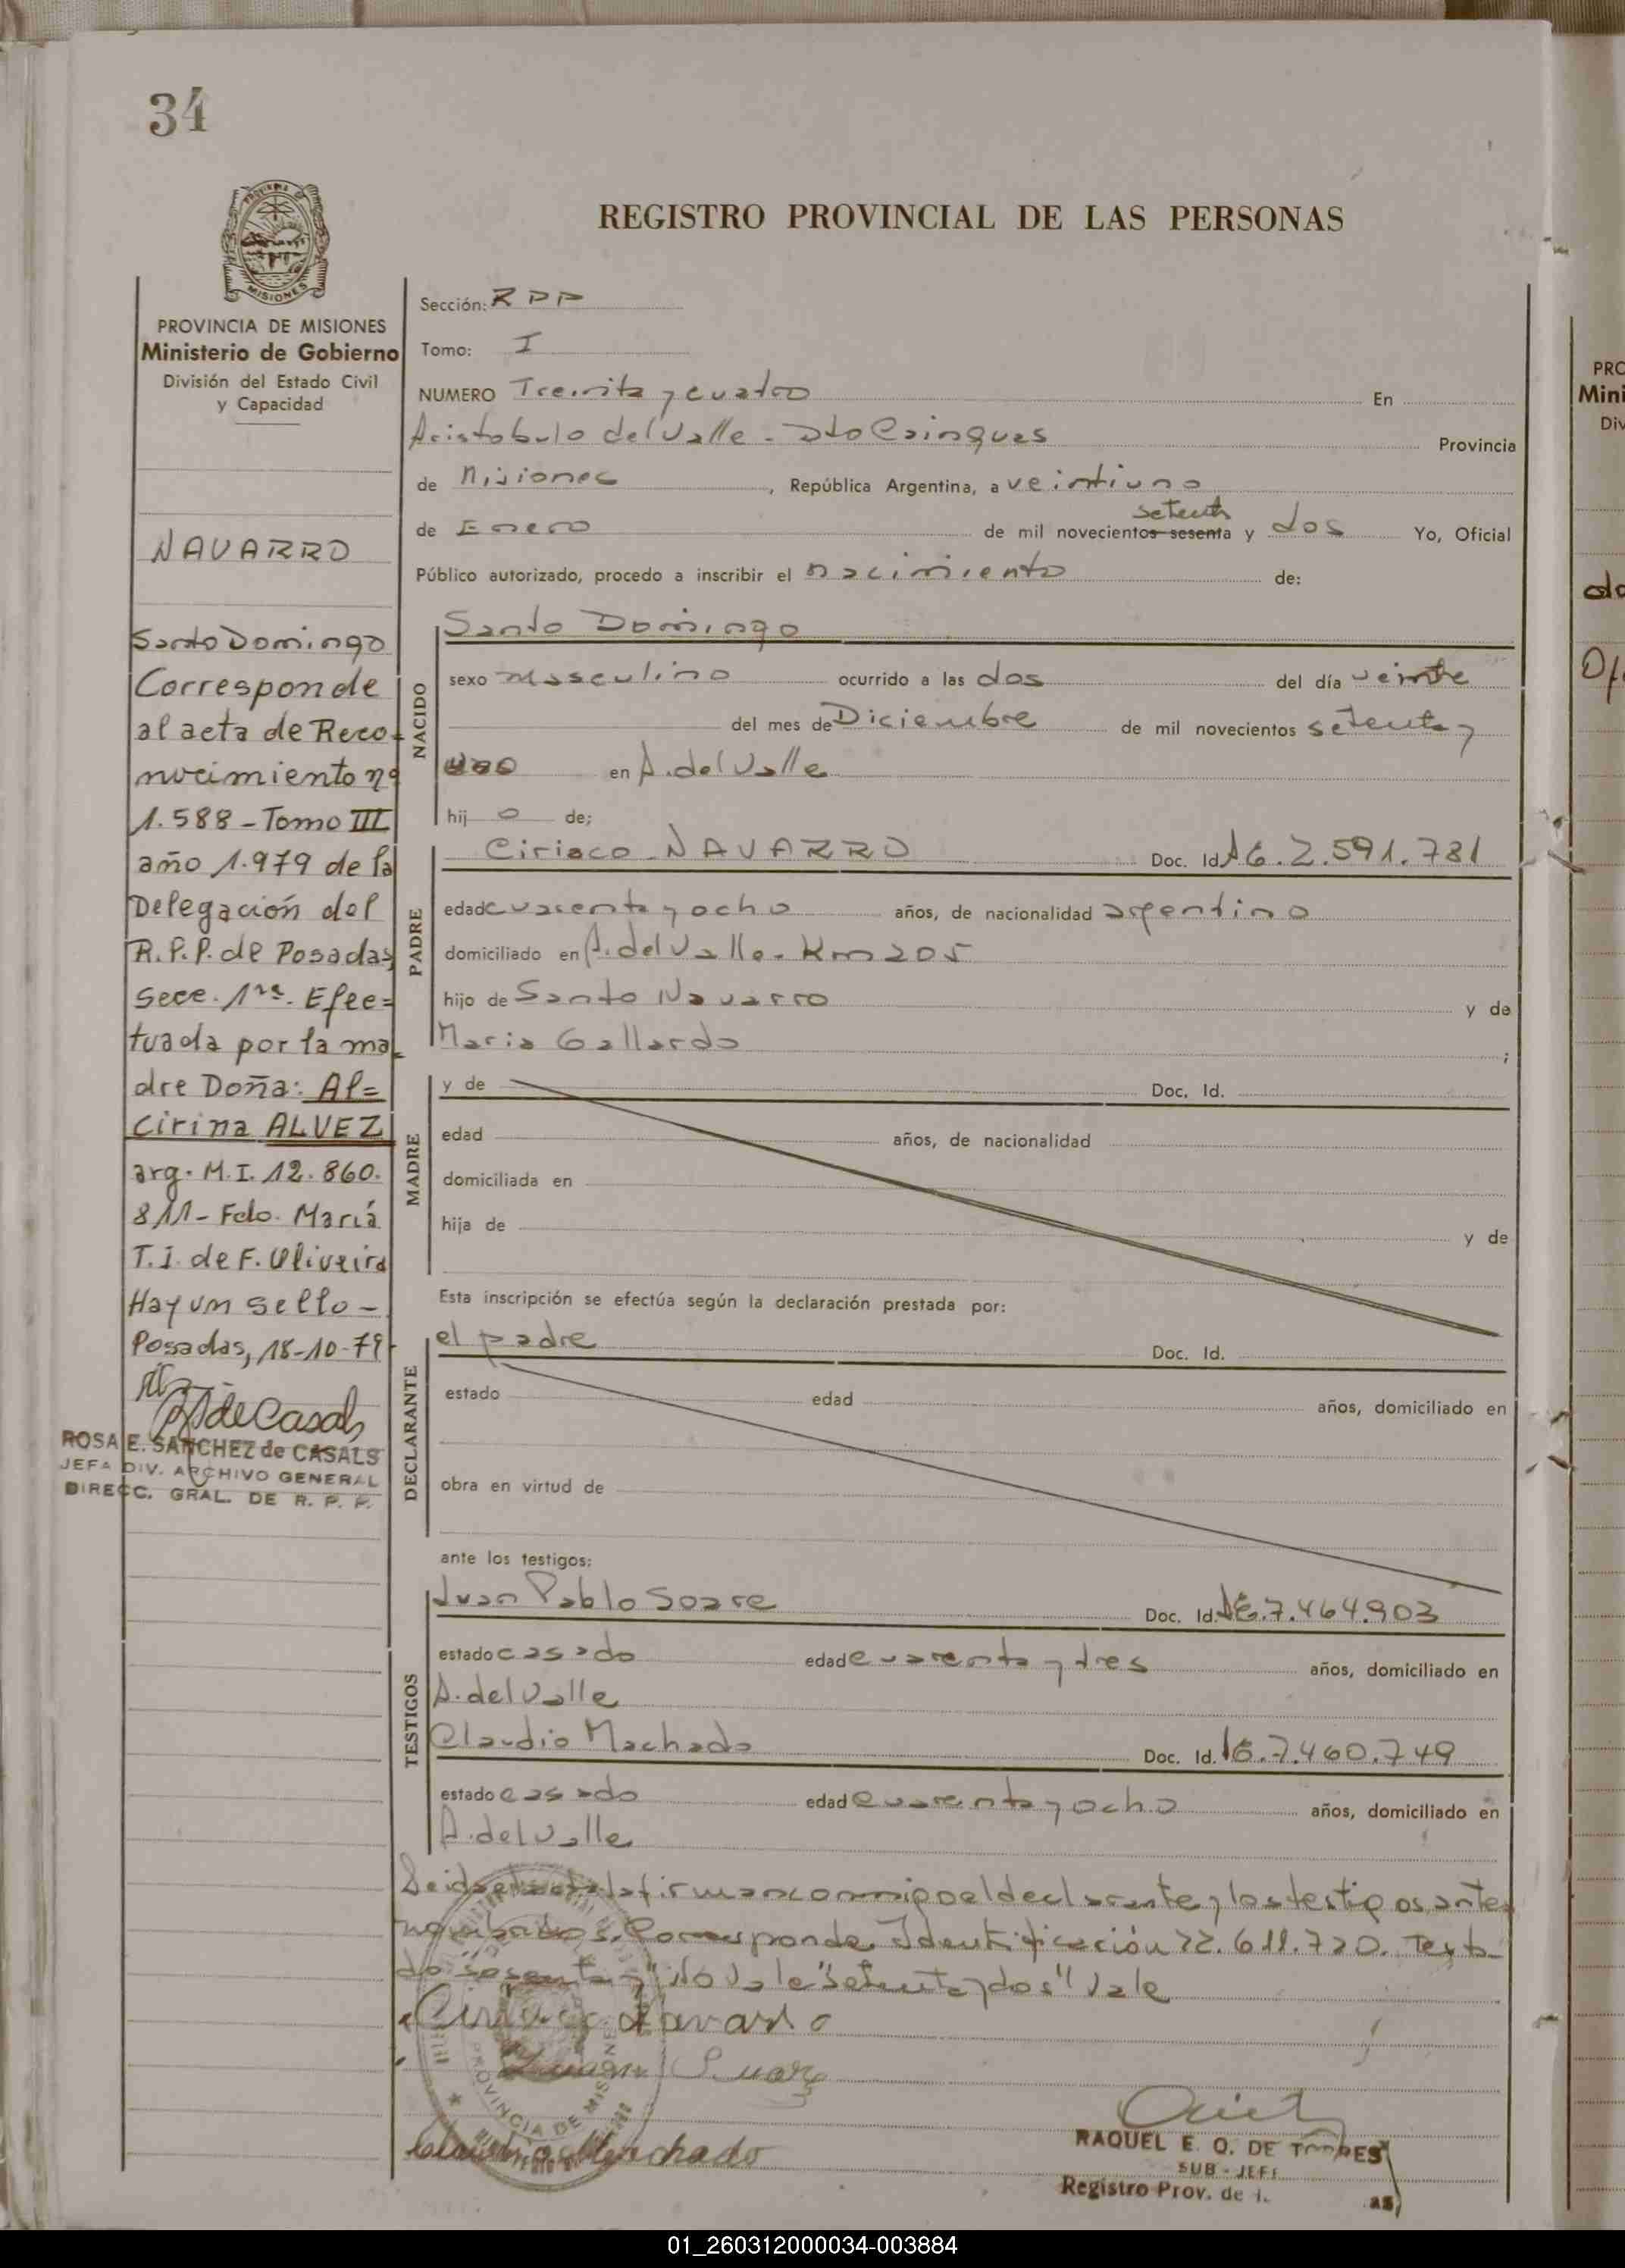 34
REGISTRO PROVINCIAL DE LAS PERSONAS
MISIONES
PROVINCIA DE MISIONES
Ministerio de Gobierno
División del Estado Civil
y Capacidad
NAVARRO
Santo Domingo
Corresponde
al acta de Reco-
nocimiento nº
1.588 - Tomo III
año 1.979 de la
Delegación del
R.P.P. de Posadas,
Secc. 1ra. Efec=
tuada por la ma-
dre Doña: Al=
cirina ALVEZ
arg. M.I. 12.860.
811 - Fdo. María
T.I. de F. Oliveira
Hay un sello -
Posadas, 18-10-79
ROSA E. SANCHEZ de CASALS
JEFA DIV. ARCHIVO GENERAL
DIRECC. GRAL. DE R. P. P.
Sección: RPP
Tomo: I
NUMERO Treinta y cuatro En
Aristobulo del Valle - Dto Cainguas Provincia
de Misiones, República Argentina, a veintiuno
setenta
de Enero de mil novecientos sesenta y dos Yo, Oficial
Público autorizado, procedo a inscribir el nacimiento de:
NACIDO
Santo Domingo
sexo masculino ocurrido a las dos del día veinte
del mes de Diciembre de mil novecientos setenta y
uno en A. del Valle
hij o de;
PADRE
Ciriaco NAVARRO Doc. Id. 2.591.781
edad cuarenta y ocho años, de nacionalidad argentino
domiciliado en A. del Valle - Km 205
hijo de Santo Navarro y de
Maria Gallardo ;
MADRE
y de Doc. Id.
edad años, de nacionalidad
domiciliada en
hija de y de
Esta inscripción se efectúa según la declaración prestada por:
DECLARANTE
el padre Doc. Id.
estado edad años, domiciliado en
obra en virtud de
ante los testigos:
TESTIGOS
Juan Pablo Soare Doc. Id. 7.464.903
estado casado edad cuarenta y tres años, domiciliado en
A. del Valle
Claudio Machado Doc. Id. 7.460.749
estado casado edad cuarenta y ocho años, domiciliado en
A. del Valle
Leida el acta la firman conmigo el declarante y los testigos ante
nombrados. Corresponde Identificación 22.611.720. Testa-
do "sesenta y" No Vale "setenta y dos" Vale
Ciriaco Navarro
Juan
Claudio Machado
PROVINCIA DE MISIONES
RAQUEL E. O. DE TORRES
SUB - JEFE
Registro Prov. de
as
PRO
Mini
Div
01_260312000034-003884